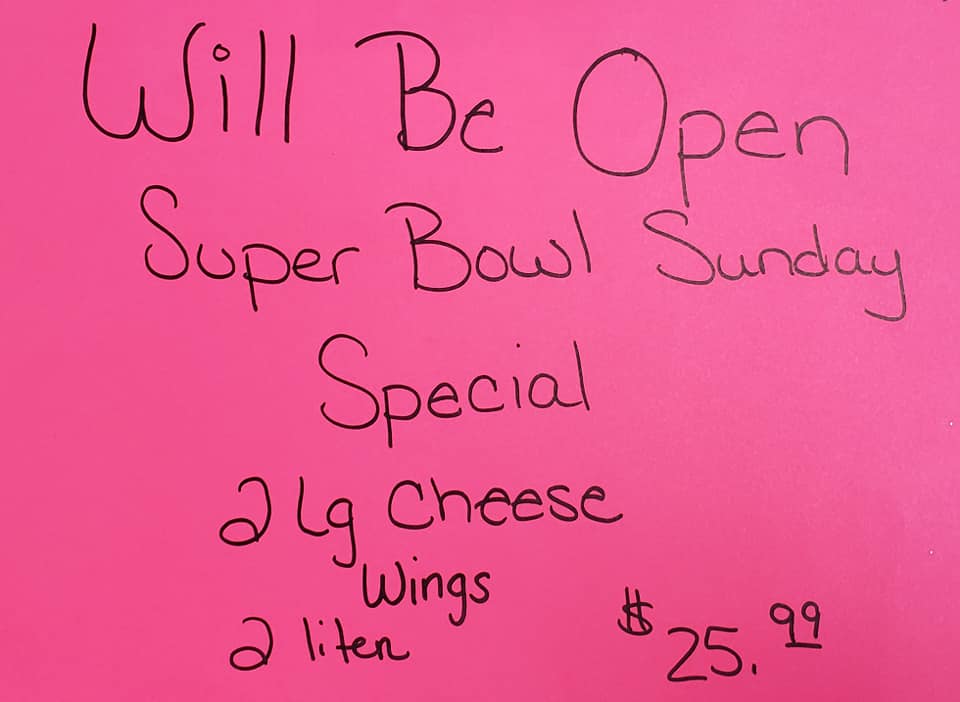 Will Be Open
Super Bowl Sunday
Special
2 Lg Cheese
Wings
2 liter $25.99